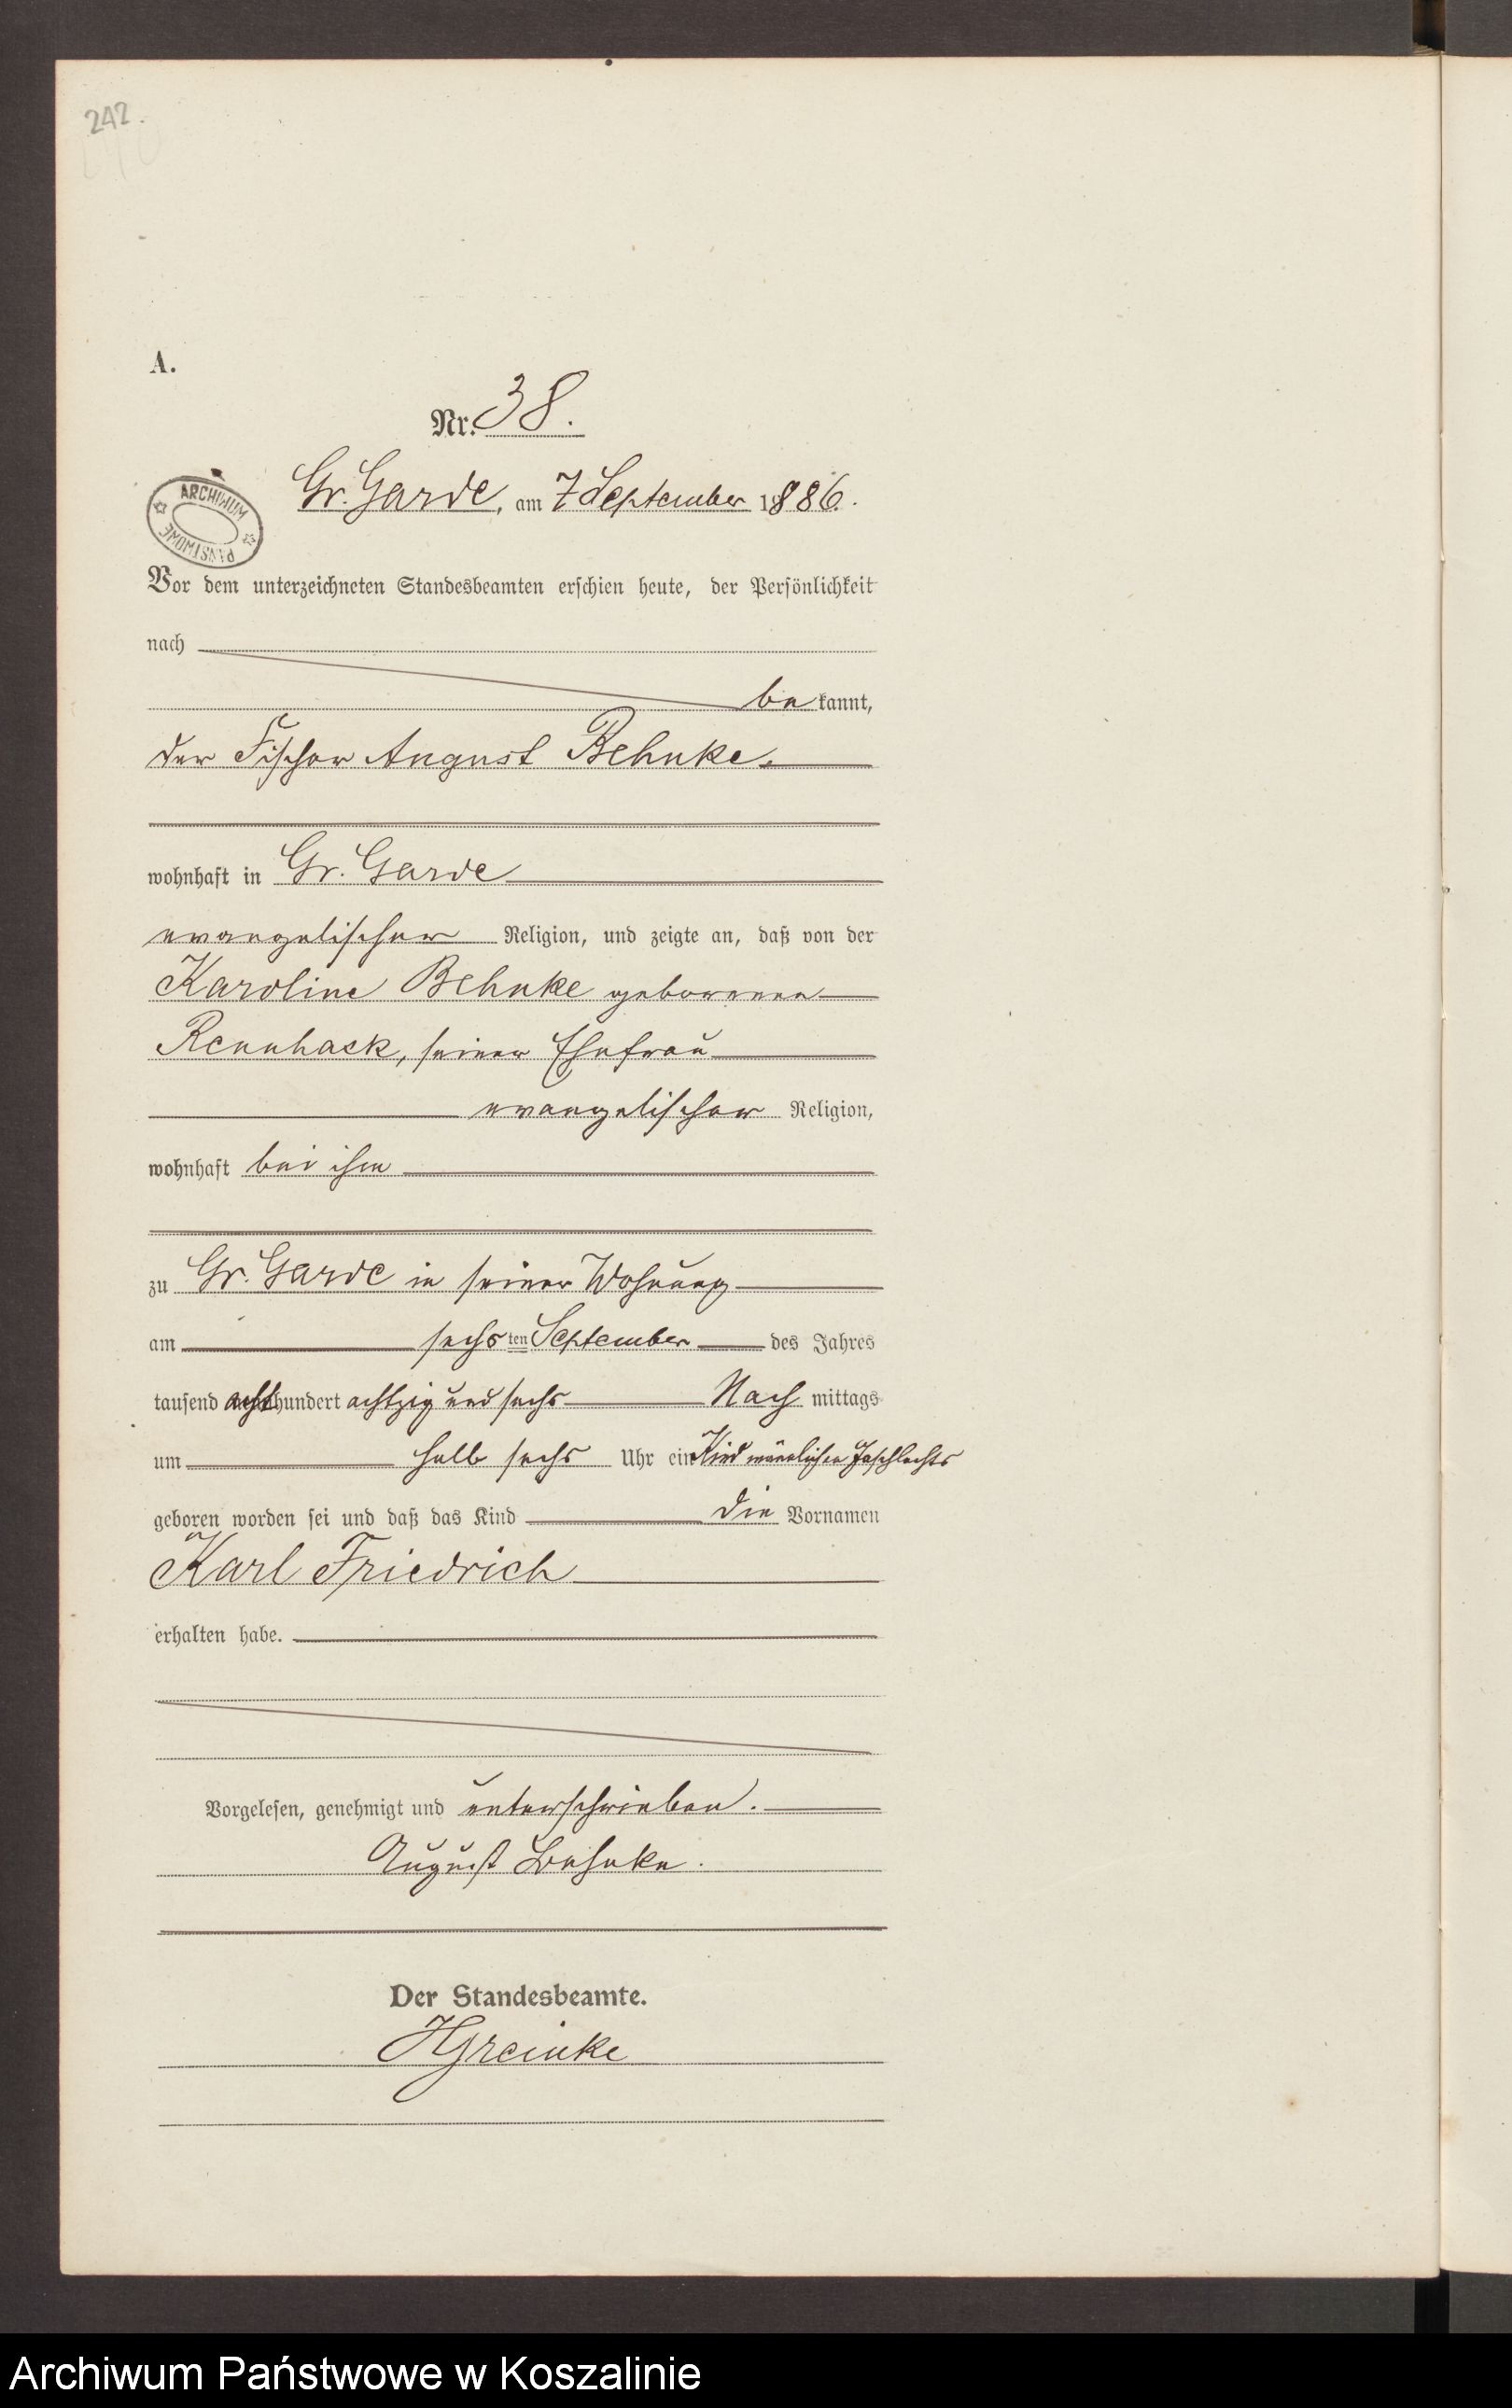 242.
A.
Nr. 38.
Gr. Garde, am 7 September 1886.
ARCHIWUM PAŃSTWOWE
Vor dem unterzeichneten Standesbeamten erschien heute, der Persönlichkeit
nach
be kannt,
der Fischer August Behnke.
wohnhaft in Gr. Garde
evangelischer Religion, und zeigte an, daß von der
Karoline Behnke geborenen
Rennhack, seiner Ehefrau
evangelischer Religion,
wohnhaft bei ihm
zu Gr. Garde in seiner Wohnung
am sechs ten September des Jahres
tausend achthundert achtzig und sechs Nach mittags
um halb sechs Uhr ein Kind männlichen Geschlechts
geboren worden sei und daß das Kind die Vornamen
Karl Friedrich
erhalten habe.
Vorgelesen, genehmigt und unterschrieben.
August Behnke.
Der Standesbeamte.
HGreinke
Archiwum Państwowe w Koszalinie